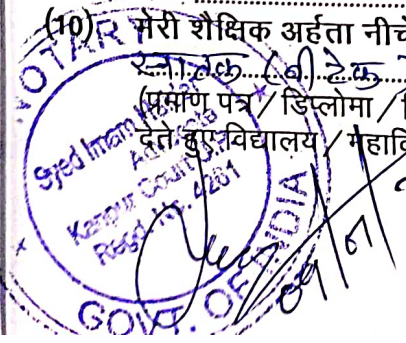 (10) मेरी शैक्षिक अर्हता नीचे
स्नातक (बी.टेक
(प्रमाण पत्र / डिप्लोमा /
देते हुए विद्यालय / महावि
NOTARY
Syed Imam
Advocate
Kanpur Court
Regd. No. 4261
GOVT. OF INDIA